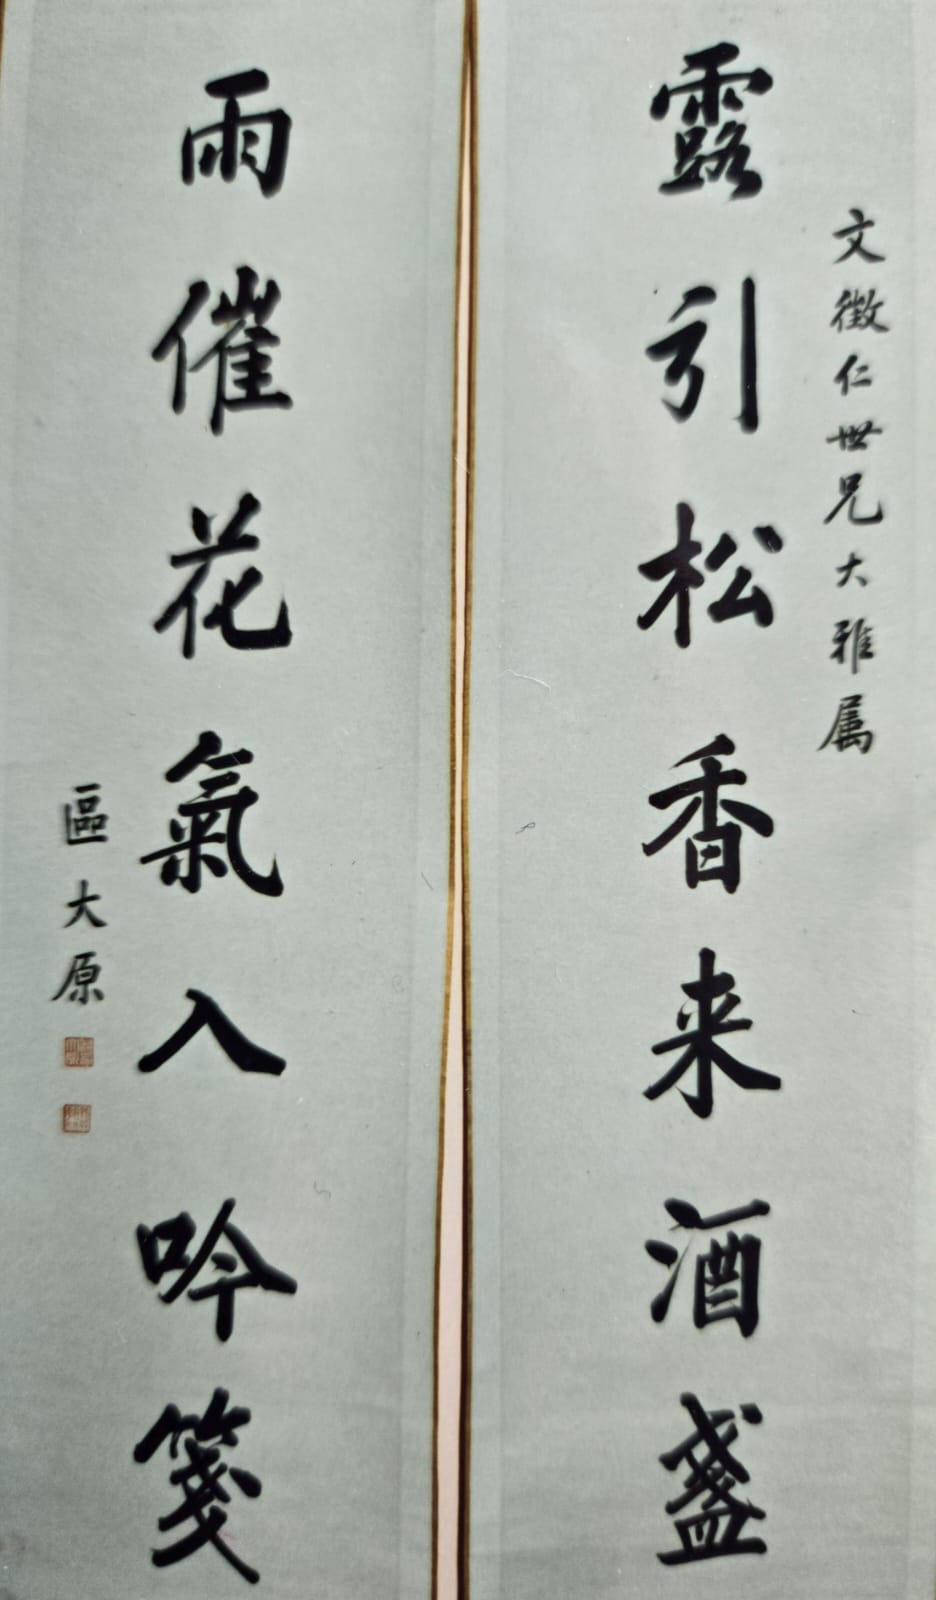 文徵仁世兄大雅属
露引松香来酒盏
雨催花氣入吟箋
區大原